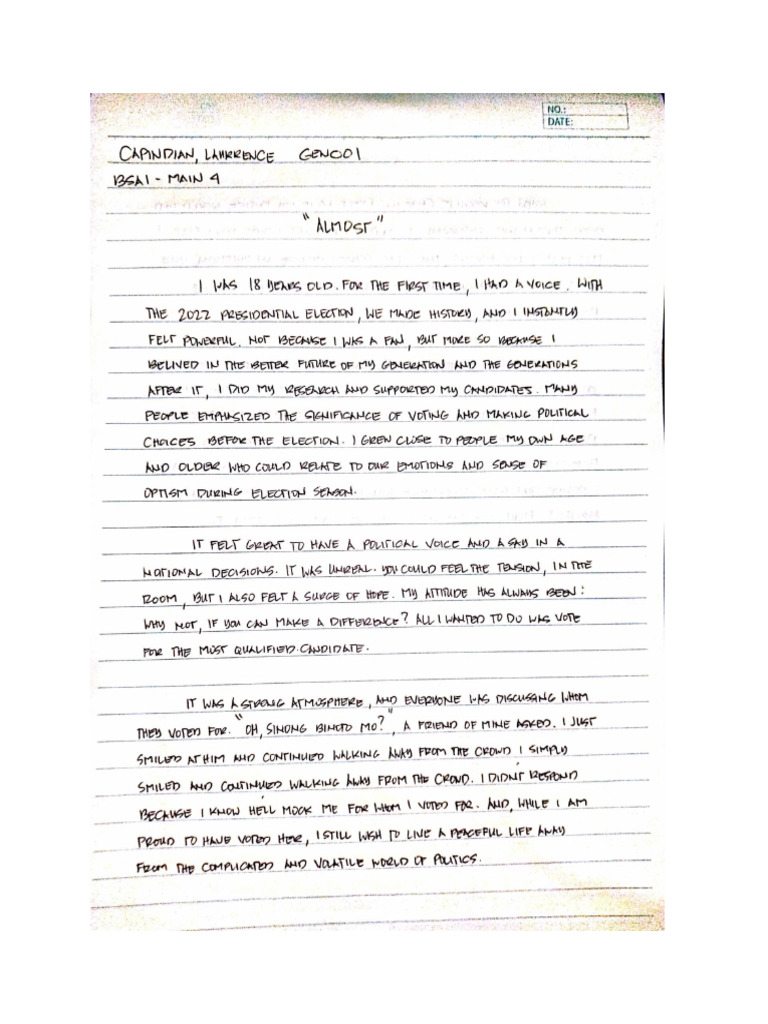 NO.:
DATE:
CAPINDIAN, LAWRRENCE GENCOO1
BSA1 - MAIN 4
"ALMOST"
I WAS 18 YEARS OLD. FOR THE FIRST TIME, I HAD A VOICE. WITH
THE 2022 PRESIDENTIAL ELECTION, WE MADE HISTORY, AND I INSTANTLY
FELT POWERFUL. NOT BECAUSE I WAS A FAN, BUT MORE SO BECAUSE I
BELIVED IN THE BETTER FUTURE OF MY GENERATION AND THE GENERATIONS
AFTER IT, I DID MY RESEARCH AND SUPPORTED MY CANDIDATES. MANY
PEOPLE EMPHASIZED THE SIGNIFICANCE OF VOTING AND MAKING POLITICAL
CHOICES BEFOR THE ELECTION. I GREW CLOSE TO PEOPLE MY OWN AGE
AND OLDER WHO COULD RELATE TO OUR EMOTIONS AND SENSE OF
OPTISM DURING ELECTION SEASON.
IT FELT GREAT TO HAVE A POLITICAL VOICE AND A SAY IN A
NATIONAL DECISIONS. IT WAS UNREAL. YOU COULD FEEL THE TENSION, IN THE
ROOM, BUT I ALSO FELT A SURGE OF HOPE. MY ATTITUDE HAS ALWAYS BEEN:
WHY NOT, IF YOU CAN MAKE A DIFFERENCE? ALL I WANTED TO DO WAS VOTE
FOR THE MOST QUALIFIED CANDIDATE.
IT WAS A STRONG ATMOSPHERE, AND EVERYONE WAS DISCUSSING WHOM
THEY VOTED FOR. "OH, SINONG BINOTO MO?", A FRIEND OF MINE ASKED. I JUST
SMILED AT HIM AND CONTINUED WALKING AWAY FROM THE CROWD I SIMPLY
SMILED AND CONTINUED WALKING AWAY FROM THE CROWD. I DIDN'T RESPOND
BECAUSE I KNOW HE'LL MOCK ME FOR WHOM I VOTED FOR. AND, WHILE I AM
PROUD TO HAVE VOTED HERE, I STILL WISH TO LIVE A PEACEFUL LIFE AWAY
FROM THE COMPLICATED AND VOLATILE WORLD OF POLITICS.